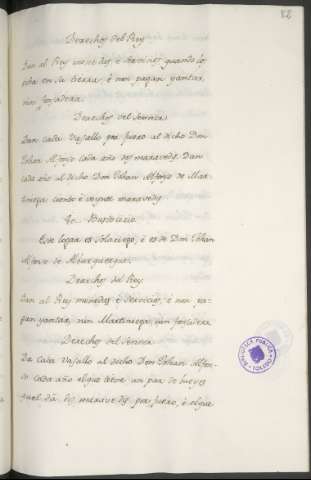 82
Derechos del Rey
Dan al Rey monedas, é servicios quando los
echa en la tierra, é non pagan yantar,
nin fonsadera.
Derechos del Sennor
Dan cada vasallo por fuero al dicho Don
Johan Alfonso cada año dos maravedis. Dan
cada año al dicho Don Johan Alfonso de Mar-
tiniega ciento é veynte maravedis.
Este logar es Solariego, é es de Don Johan
Alfonso de Alburquerque.
Derechos del Rey.
Dan al Rey monedas é servicios, é non pa-
gan yantar, nin Martiniega, nin fonsadera
Derechos del Sennor
Da cada vasallo al dicho Don Johan Alfon-
so cada año el que tiene un par de bueyes
dos maravedis por fuero, é el que
BIBLIOTECA PUBLICA TOLEDO